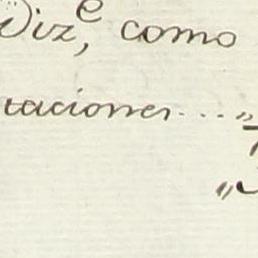 Diz^e, como
taciones..."
"